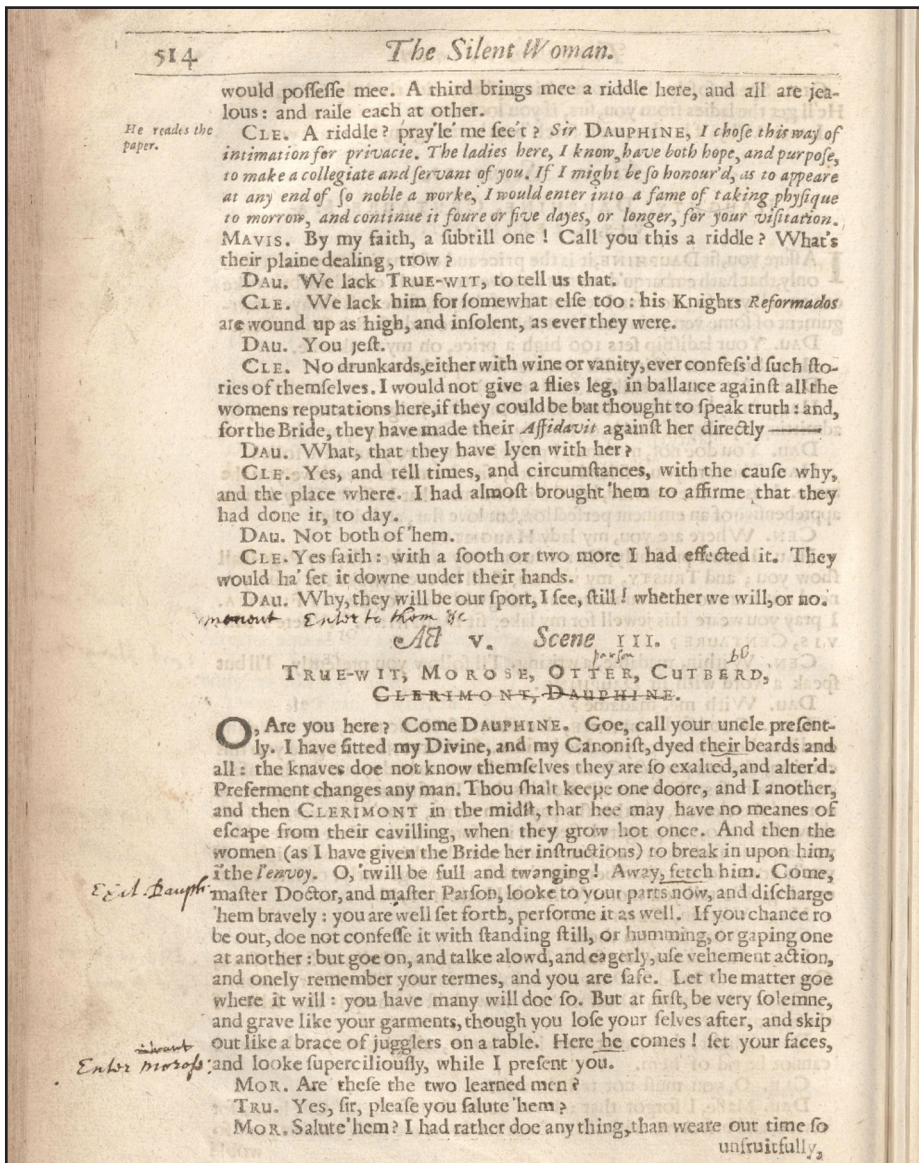 514 The Silent Woman.
would poſſeſſe mee. A third brings mee a riddle here, and all are jea-
lous: and raile each at other.
He reades the
paper.
CLE. A riddle? pray'le' me ſee't? Sir DAUPHINE, I choſe this way of
intimation for privacie. The ladies here, I know, have both hope, and purpoſe,
to make a collegiate and ſervant of you. If I might be ſo honour'd, as to appeare
at any end of ſo noble a worke, I would enter into a fame of taking phyſique
to morrow, and continue it foure or five dayes, or longer, for your viſitation.
MAVIS. By my faith, a ſubtill one! Call you this a riddle? What's
their plaine dealing, trow?
DAU. We lack TRUE-WIT, to tell us that.
CLE. We lack him for ſomewhat elſe too: his Knights Reformados
are wound up as high, and inſolent, as ever they were.
DAU. You jeſt.
CLE. No drunkards, either with wine or vanity, ever confeſs'd ſuch ſto-
ries of themſelves. I would not give a flies leg, in ballance againſt all the
womens reputations here, if they could be but thought to ſpeak truth: and,
for the Bride, they have made their Affidavit againſt her directly ——
DAU. What, that they have lyen with her?
CLE. Yes, and tell times, and circumſtances, with the cauſe why,
and the place where. I had almoſt brought 'hem to affirme that they
had done it, to day.
DAU. Not both of 'hem.
CLE. Yes faith: with a ſooth or two more I had effected it. They
would ha' ſet it downe under their hands.
DAU. Why, they will be our ſport, I ſee, ſtill! whether we will, or no.
Enter to them &c
Act V. Scene III.
parſon
TRUE-WIT, MOROSE, OTTER, CUTBERD,
CLERIMONT, DAUPHINE.
O, Are you here? Come DAUPHINE. Goe, call your uncle preſent-
ly. I have fitted my Divine, and my Canoniſt, dyed their beards and
all: the knaves doe not know themſelves they are ſo exalted, and alter'd.
Preferment changes any man. Thou ſhalt keepe one doore, and I another,
and then CLERIMONT in the midſt, that hee may have no meanes of
eſcape from their cavilling, when they grow hot once. And then the
women (as I have given the Bride her inſtructions) to break in upon him,
i'the l'envoy. O, 'twill be full and twanging! Away, fetch him. Come,
Exit Dauph:
maſter Doctor, and maſter Parſon, looke to your parts now, and diſcharge
'hem bravely: you are well ſet forth, performe it as well. If you chance to
be out, doe not confeſſe it with ſtanding ſtill, or humming, or gaping one
at another: but goe on, and talke alowd, and eagerly, uſe vehement action,
and onely remember your termes, and you are ſafe. Let the matter goe
where it will: you have many will doe ſo. But at firſt, be very ſolemne,
and grave like your garments, though you loſe your ſelves after, and skip
out like a brace of jugglers on a table. Here he comes! ſet your faces,
Enter moroſs:
and looke ſuperciliouſly, while I preſent you.
MOR. Are theſe the two learned men?
TRU. Yes, ſir, pleaſe you ſalute 'hem?
MOR. Salute 'hem? I had rather doe any thing, than weare out time ſo
unfruitfully,